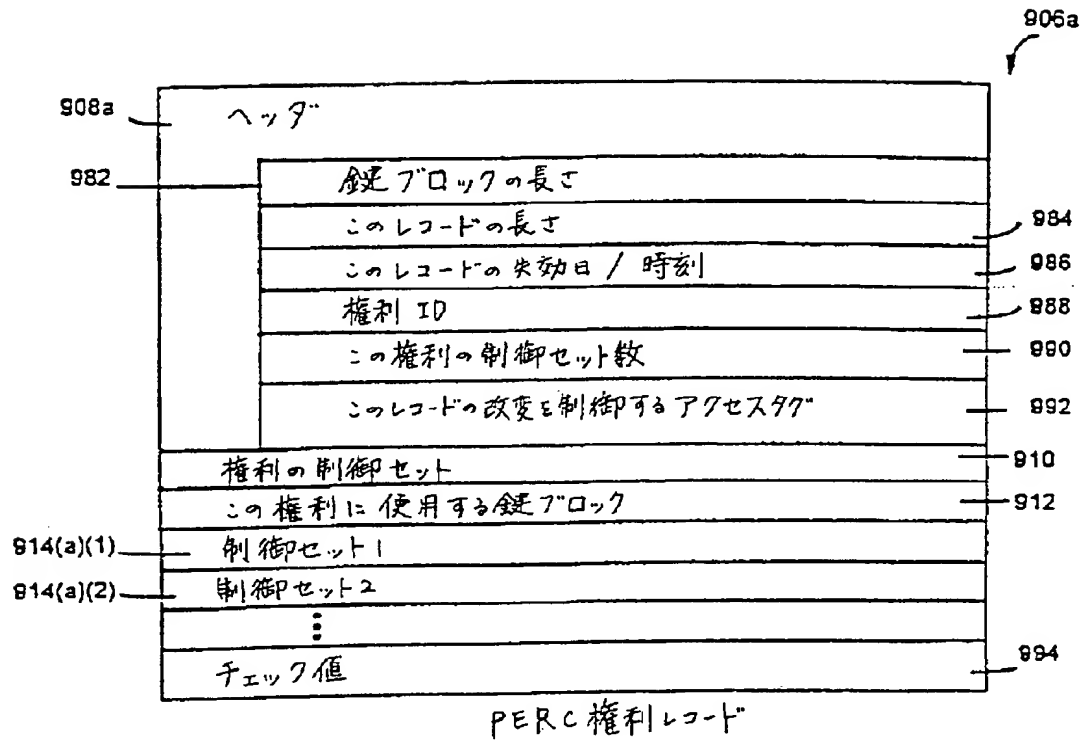 906a
908a
ヘッダ
982
鍵ブロックの長さ
このレコードの長さ
984
このレコードの失効日 / 時刻
986
権利 ID
988
この権利の制御セット数
990
このレコードの改変を制御するアクセスタグ
992
権利の制御セット
910
この権利に使用する鍵ブロック
912
914(a)(1)
制御セット1
914(a)(2)
制御セット2
チェック値
994
PERC権利レコード